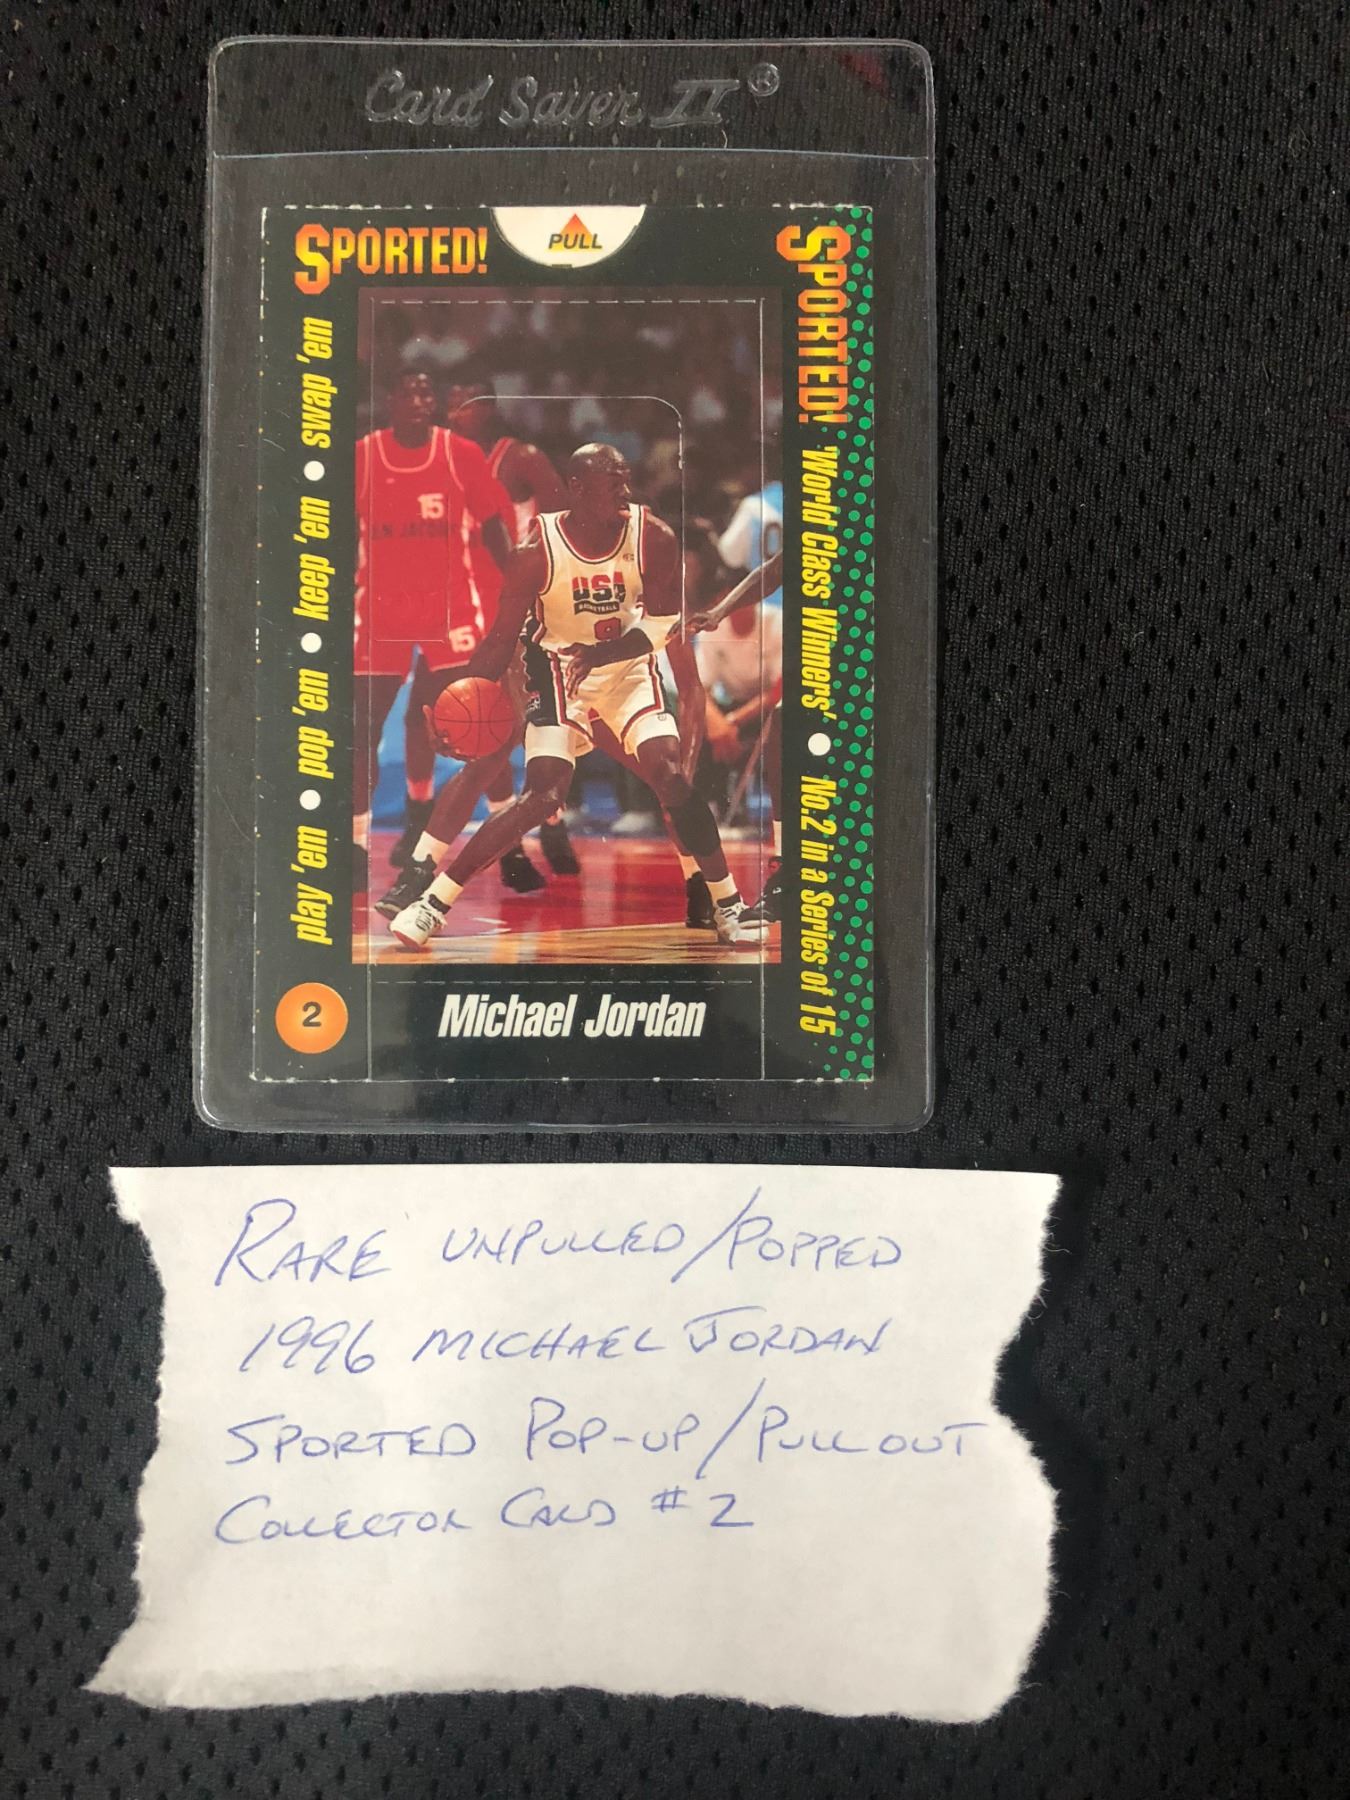 Card Saver II®
SPORTED!
PULL
SPORTED! 'World Class Winners' • No.2 in a Series of 15
play 'em • pop 'em • keep 'em • swap 'em
15
15
USA
BASKETBALL
9
2
Michael Jordan
RARE UNPULLED/POPPED
1996 MICHAEL JORDAN
SPORTED POP-UP/PULLOUT
COLLECTOR CARD #2